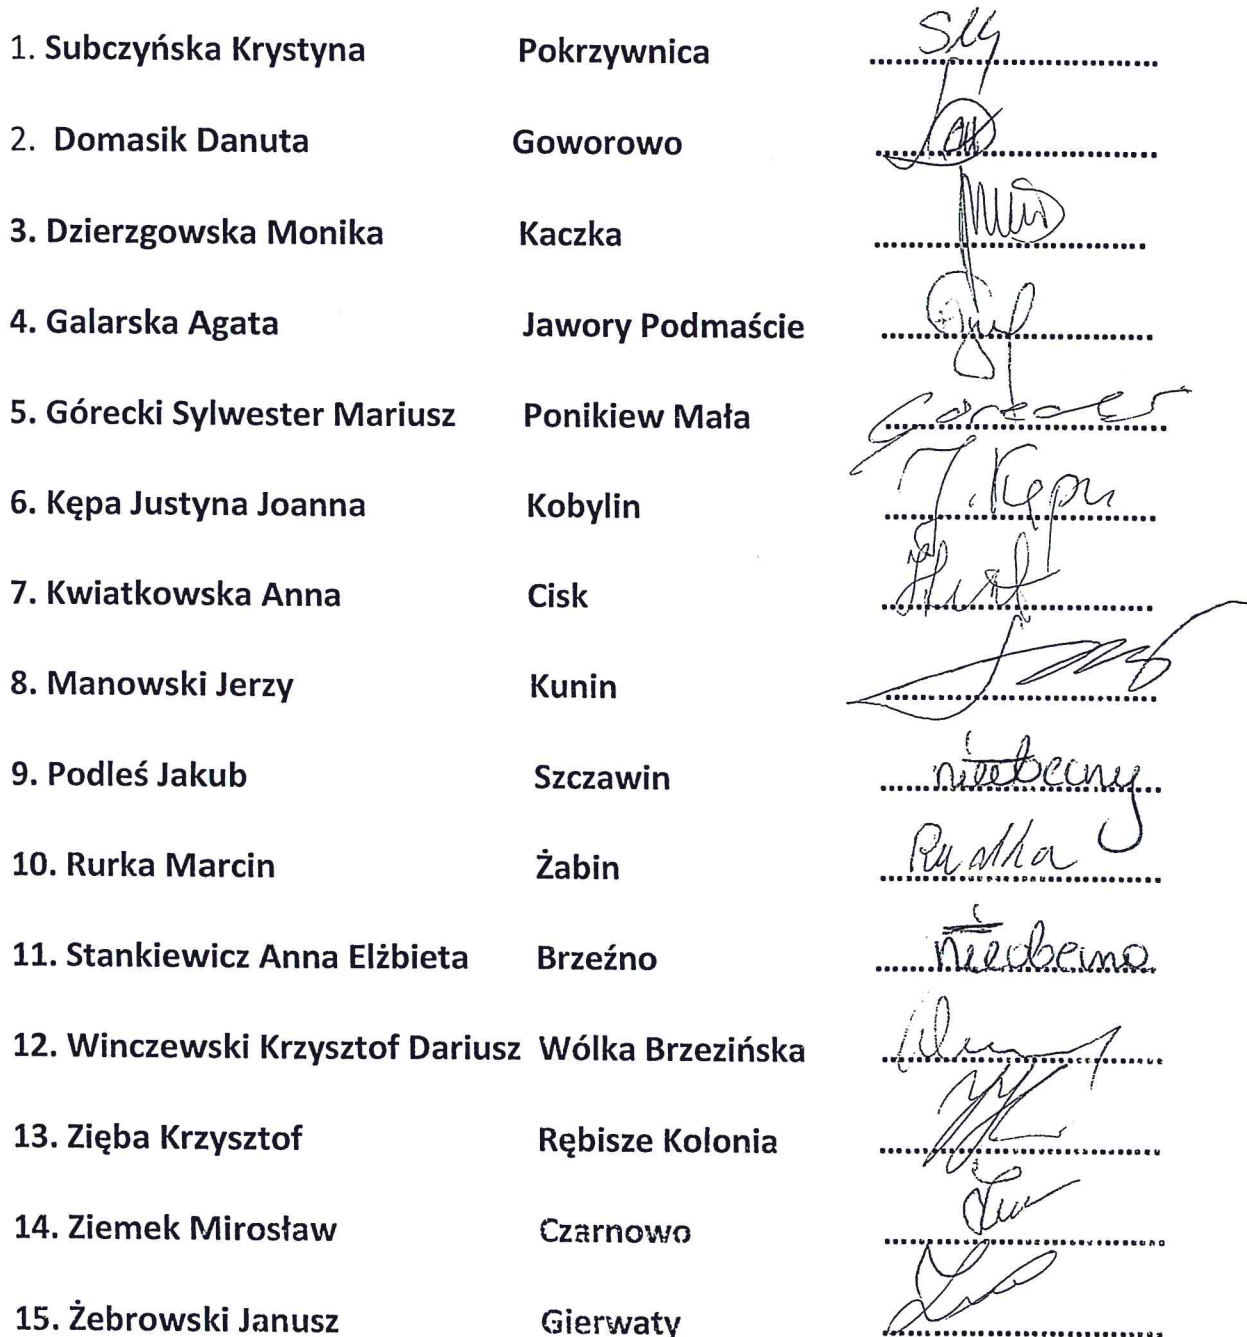 1. Subczyńska Krystyna Pokrzywnica
2. Domasik Danuta Goworowo
3. Dzierzgowska Monika Kaczka
4. Galarska Agata Jawory Podmaście
5. Górecki Sylwester Mariusz Ponikiew Mała
6. Kępa Justyna Joanna Kobylin J. Kępa
7. Kwiatkowska Anna Cisk
8. Manowski Jerzy Kunin
9. Podleś Jakub Szczawin nieobecny
10. Rurka Marcin Żabin
11. Stankiewicz Anna Elżbieta Brzeźno nieobecna
12. Winczewski Krzysztof Dariusz Wólka Brzezińska
13. Zięba Krzysztof Rębisze Kolonia
14. Ziemek Mirosław Czarnowo
15. Żebrowski Janusz Gierwaty